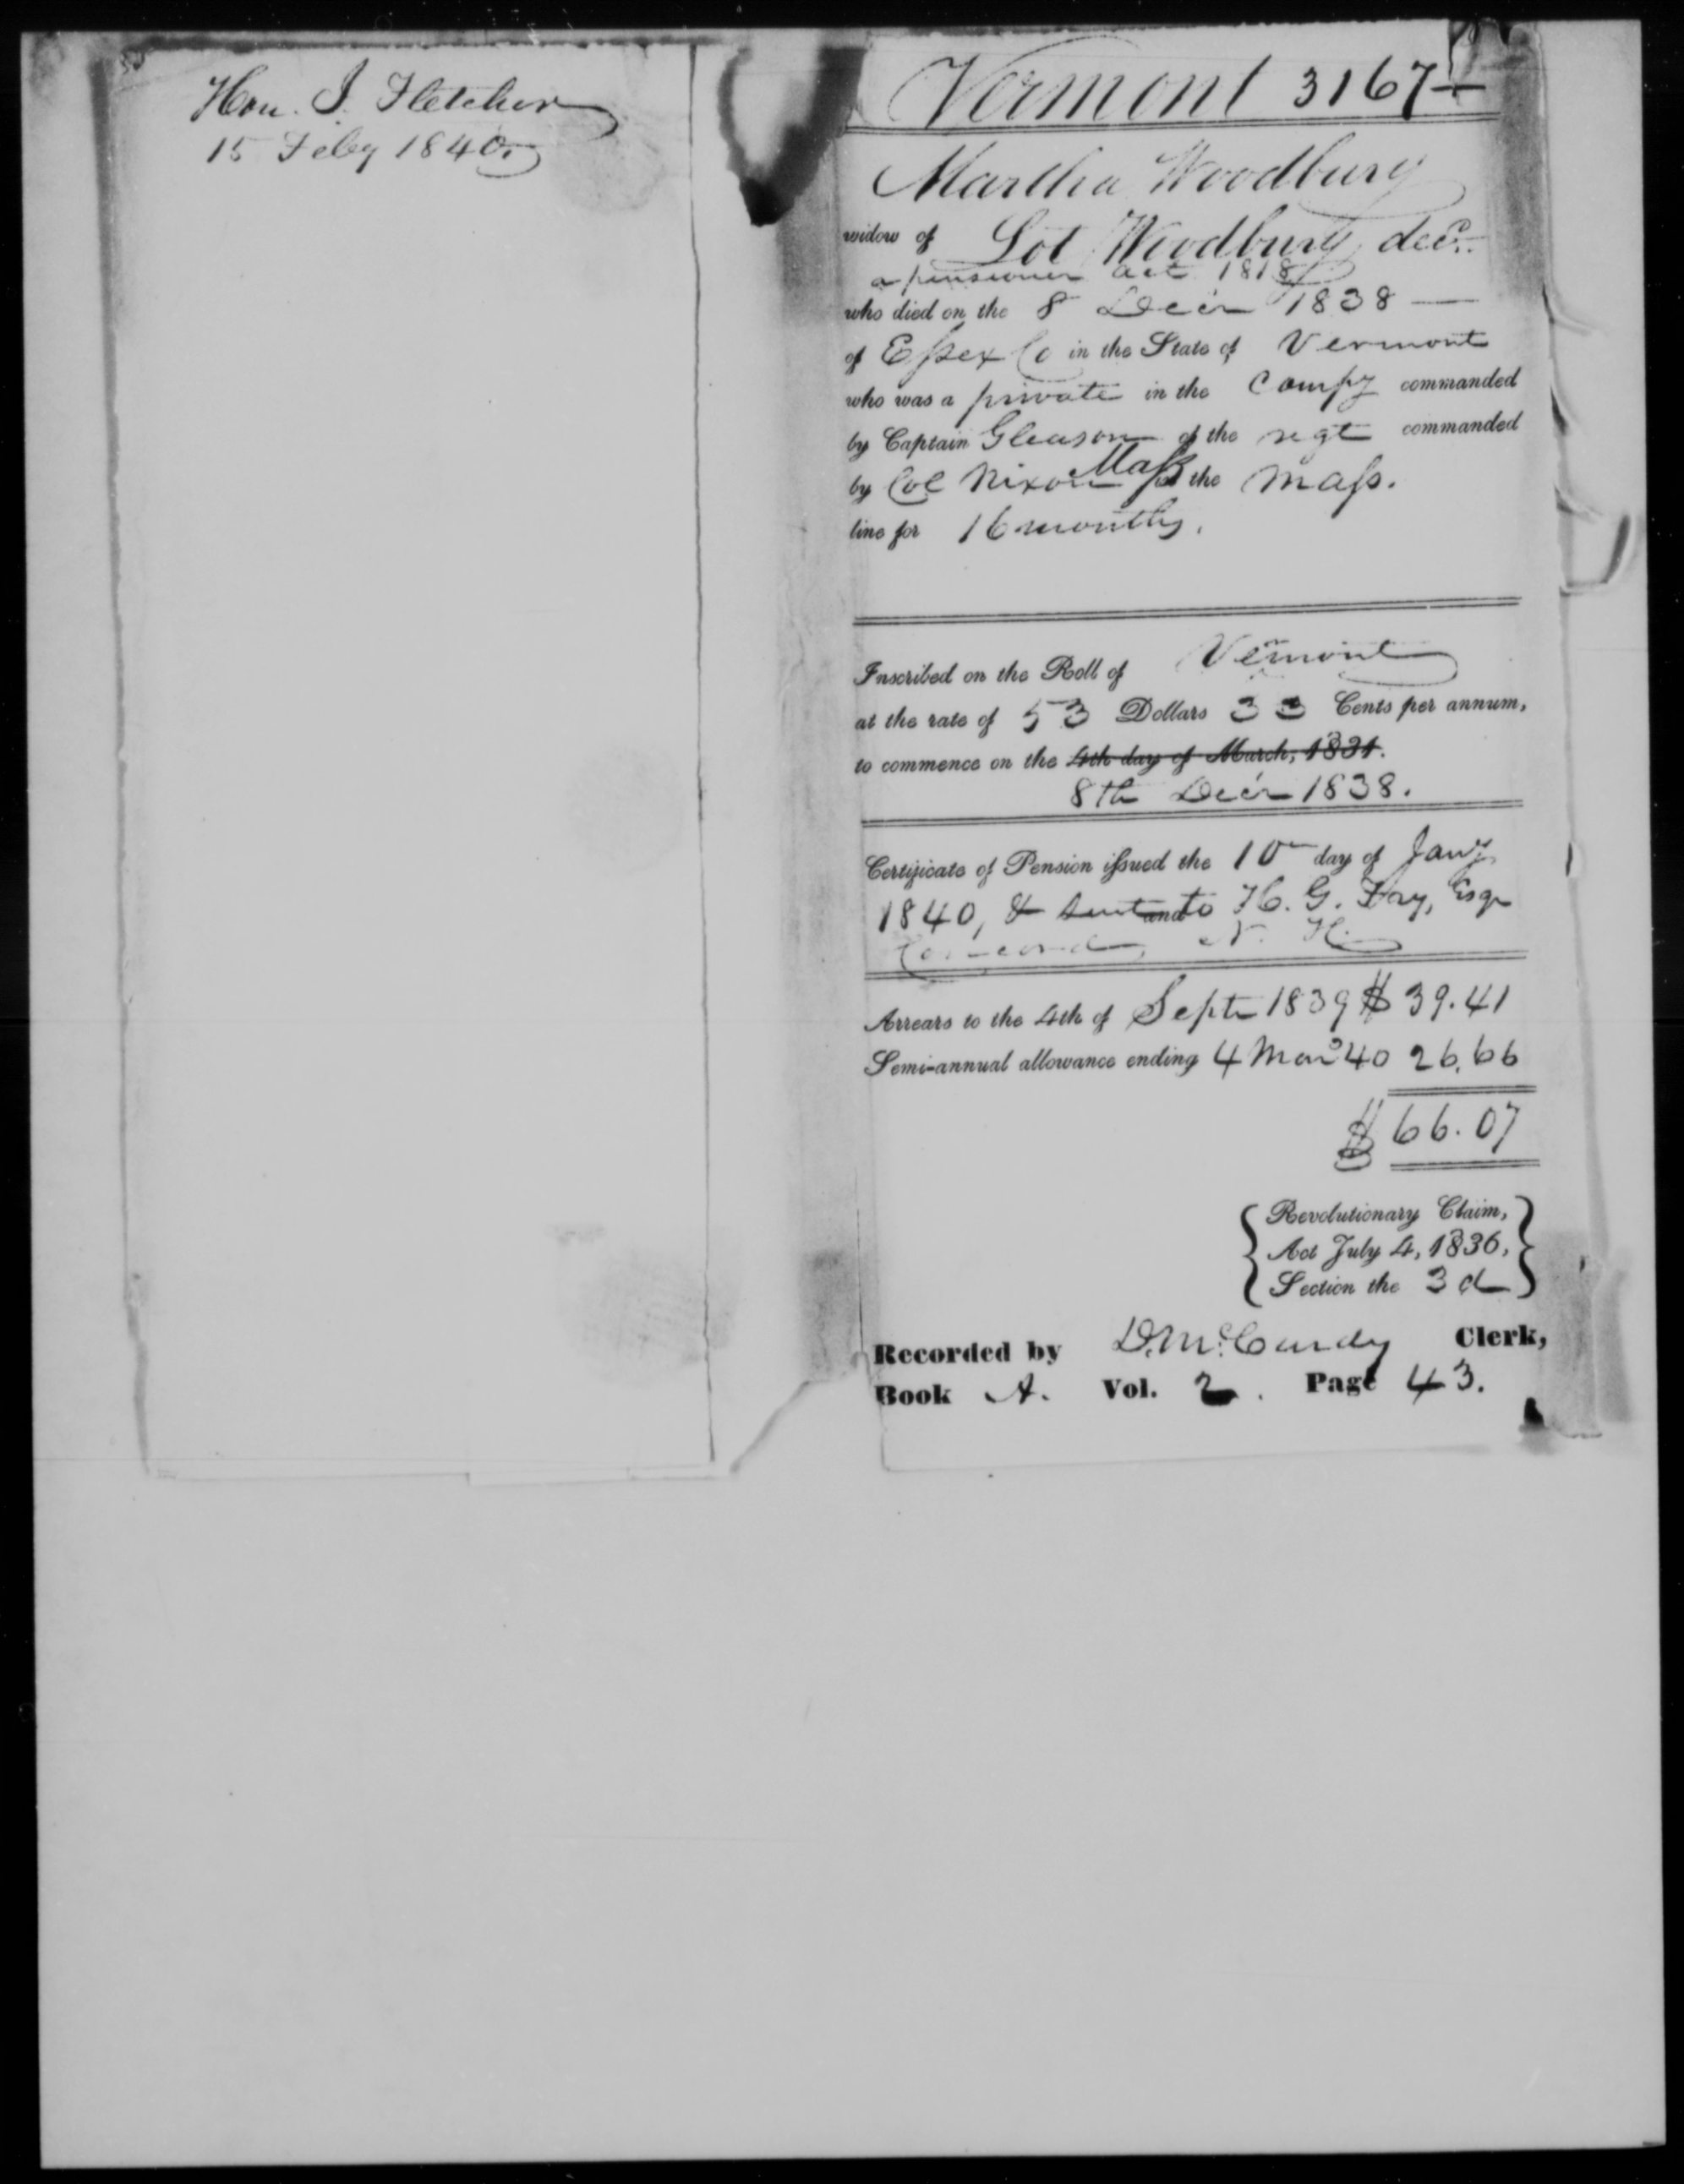 Hon. I. Fletcher
15 Feby 1840.
Vermont 3167
Martha Woodbury
widow of Lot Woodbury, decd.
a pensioner act 1818
who died on the 8 Decr 1838 —
of Essex Co in the State of Vermont
who was a private in the Compy commanded
by Captain Gleason of the regt commanded
by Col Nixon Mass the Mass.
line for 16 months.
Inscribed on the Roll of Vermont
at the rate of 53 Dollars 33 Cents per annum,
to commence on the 4th day of March, 1831.
8th Decr 1838.
Certificate of Pension issued the 10 day of Jany
1840, & sent and to H. G. Fry, Esqr
Concord, N. H.
Arrears to the 4th of Septr 1839 $ 39.41
Semi-annual allowance ending 4 Mar 40 26.66
$ 66.07
Revolutionary Claim,
Act July 4, 1836,
Section the 3d
Recorded by D. McCurdy Clerk,
Book A. Vol. 2. Page 43.